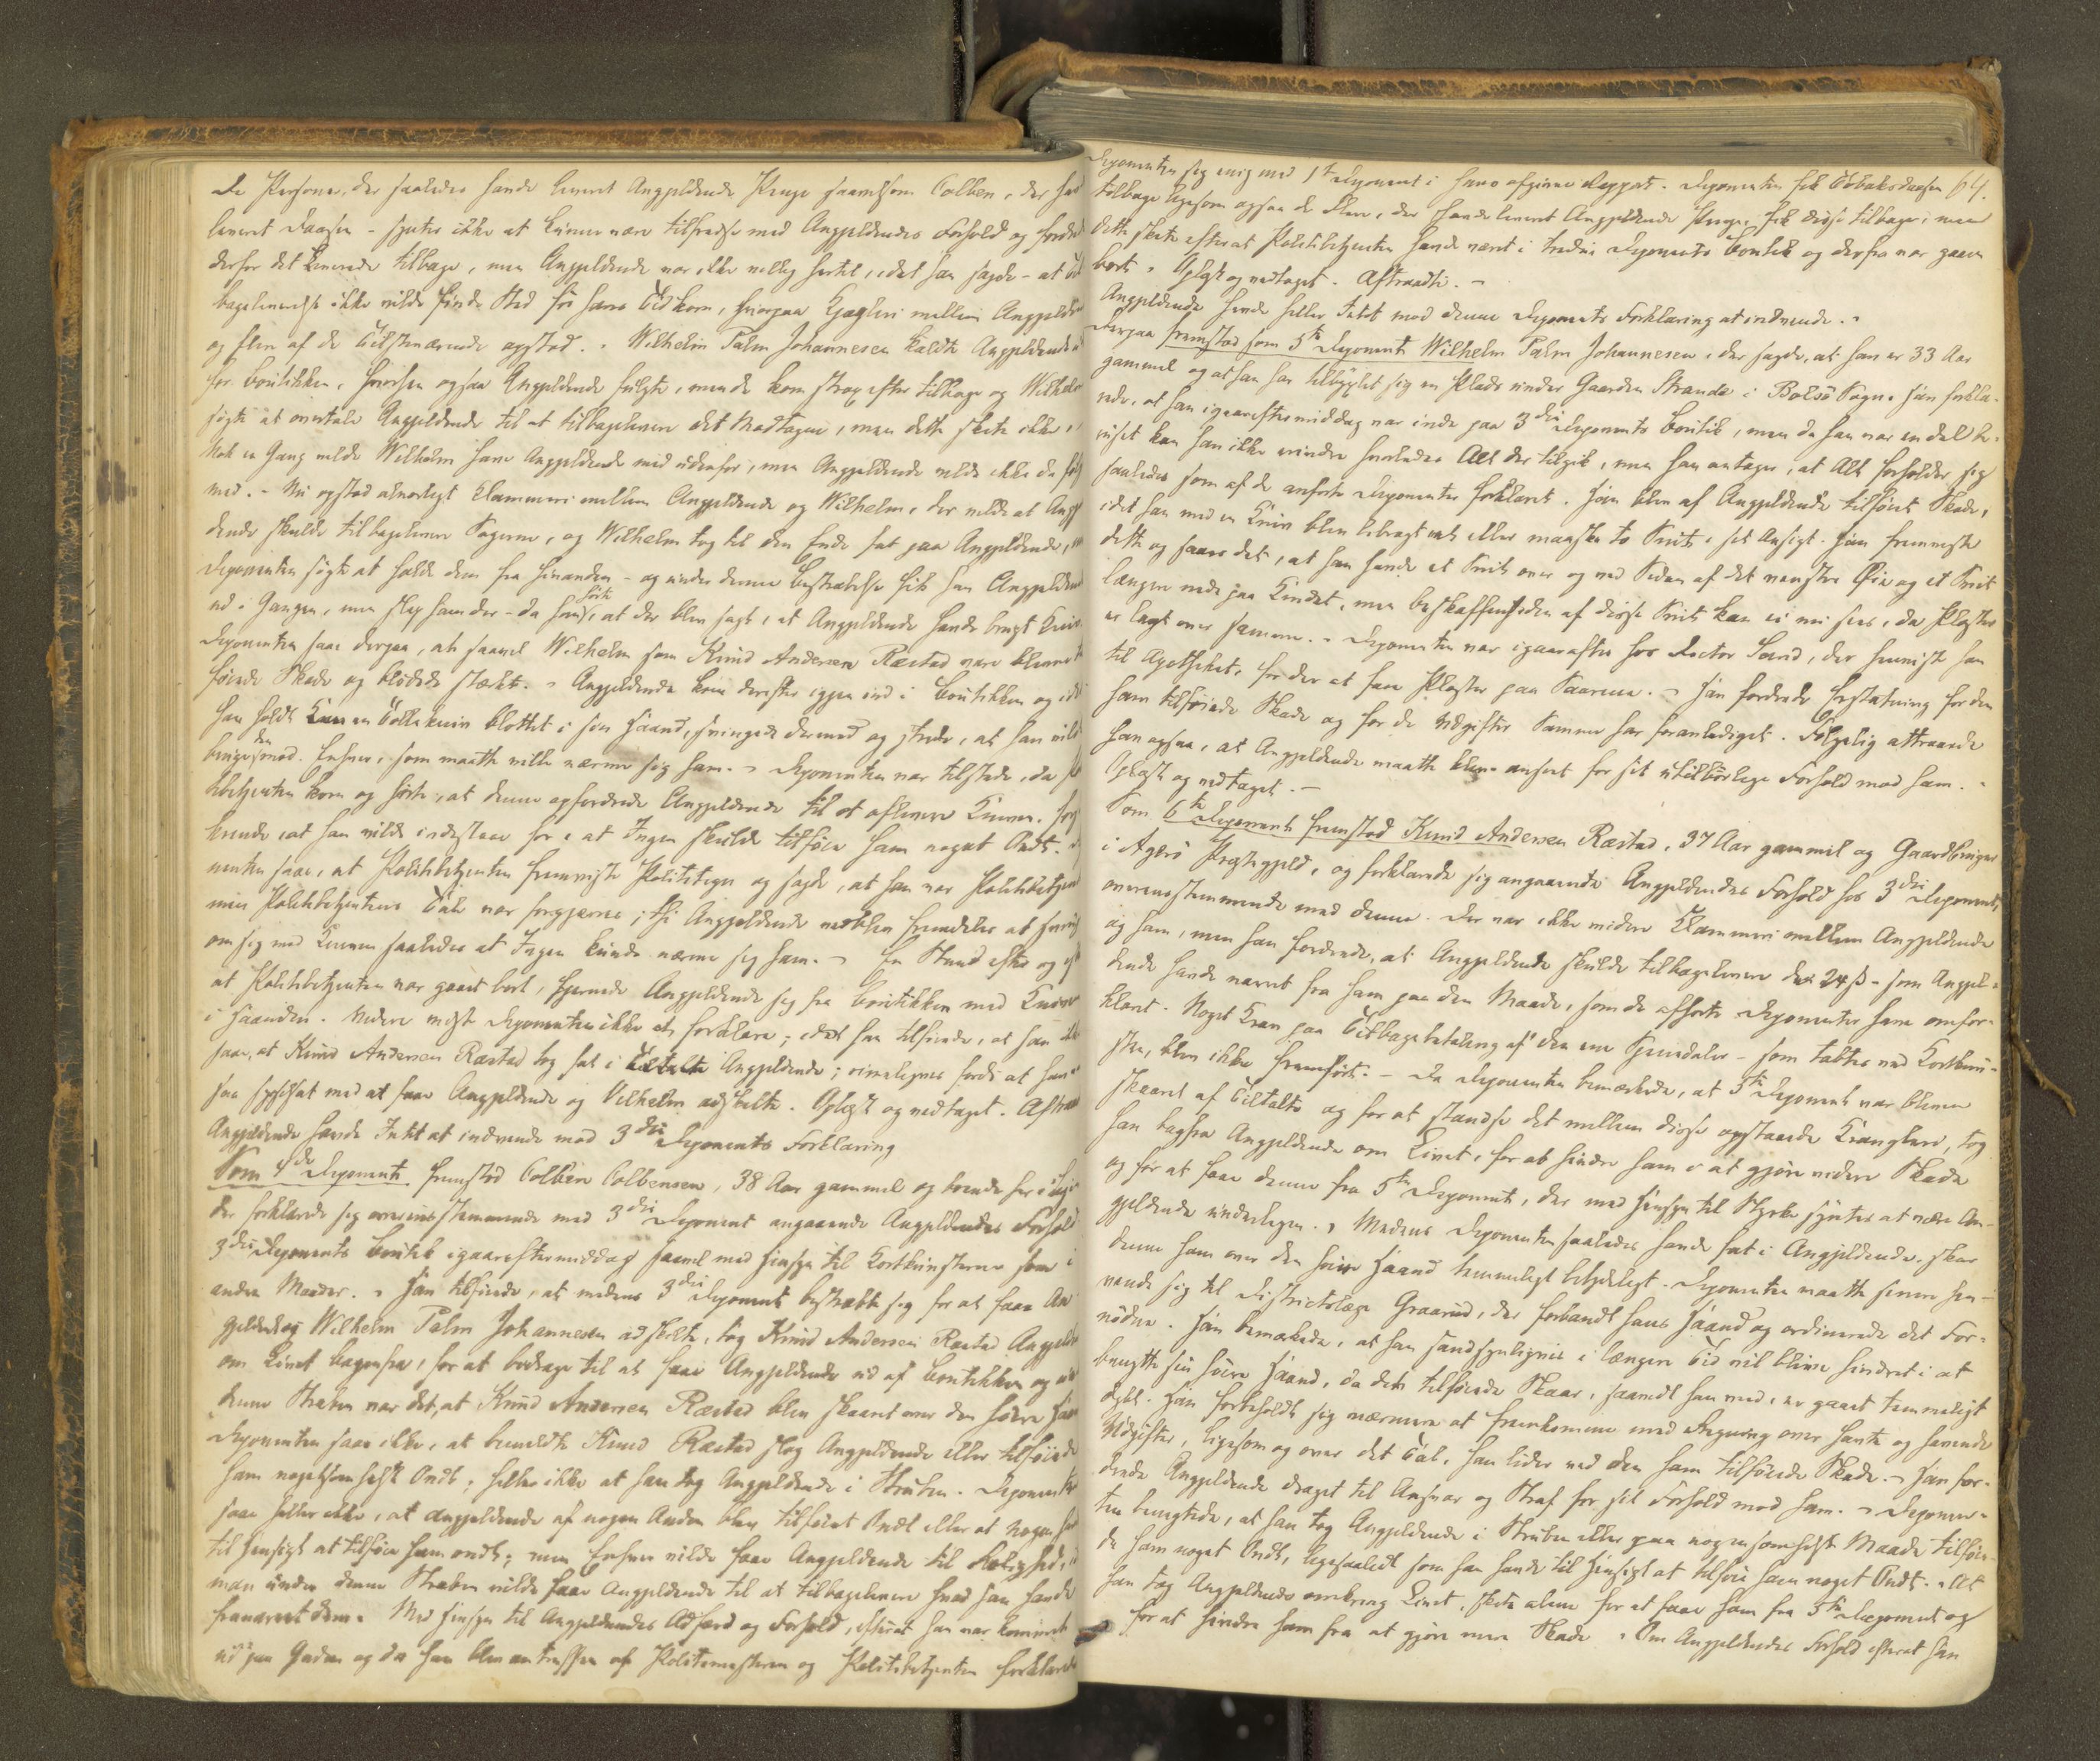 De Personer, der saaledes havde leveret Angjeldende Penge saavelsom Colben, der har
leveret Daasen - syntes ikke at kunne være tilfredse med Angjeldendes Forhold og fordrede
derfor det Leverede tilbage, men Angjeldende var ikke villig hertil, idet han sagde - at Til
bageleverelse ikke vilde finde Sted før hans Tid kom, hvorpaa Kjagleri mellem Angjeldende
og flere af de Tilstedeværende opstod. - Wilhelm Palm Johannesen kaldte Angjeldende ud
for boutikken, hvorhen ogsaa Angjeldende fulgte, men de kom strax efter tilbage og Wilhelm
søgte at overtale Angjeldende til at tilbagelevere det Modtagne, men dette skete ikke,
Nok en Gang vilde Wilhelm have Angjeldende med udenfor, men Angjeldende vilde ikke da følge
med. - Nu opstod alvorligt Klammeri mellem Angjeldende og Wilhelm, der vilde at Angjel
dende skulde tilbagelevere Sagerne, og Wilhelm tog til den Ende fat paa Angjeldende,
Deponenten søgte at holde dem fra hinanden - og under denne bestræbelse fik han Angjeldende
ud i Gangen, men slap ham der - da han hørte, at der blev sagt, at Angjeldende havde brugt Kniv.
Deponenten saae derpaa, at saavel Wilhelm som Knud Andersen Røstad vare blevne til
føiede Skade og blødede stærkt. - Angjeldende kom derefter igjen ind i boutikken og idet
han holdt en Tollekniv blottet i sin Haand, svingede dermed og skreg, at han vilde
bruge den mod Enhver, som maatte ville nærme sig ham. - Deponenten var tilstede, da Po
litibetjenten kom og hørte, at denne opfordrede Angjeldende til at aflevere Kniven. for
sikrende at han vilde indestaae for at Ingen skulde tilføie ham noget Ondt. Depo
nenten saae, at Politibetjenten fremviste Polititegn og sagde, at han var Politibetjent
men Politibetjentens Tale var forgjeves; thi Angjeldende vedblev fremdeles at svinge
om sig med Kniven saaledes at Ingen kunde nærme sig ham. - En Stund efter og efter
at Politibetjenten var gaaet bort, fjernede Angjeldende sig fra boutikken med Kniven
i Haanden. Videre vidste Deponenten ikke at forklare; idet han tilføiede, at han ikke
saae, at Knud Andersen Røstad tog fat i Angjeldende; rimeligvis fordi at han var
saa sysselsat med at faae Angjeldende og Vilhelm adskilte. Oplæst og vedtaget. Aftraadt
Angjeldende havde Intet at indvende mod 3die Deponents Forklaring
Som 4de Deponent fremstod Colben Colbensen, 38 Aar gammel og boende her i Byen
der forklarede sig overensstemmende med 3die Deponent angaaende Angjeldendes Forhold
3die Deponents boutik igaareftermiddag saavel med Hensyn til Kortkunsterne som i
andre Maader. - Han tilføiede, at medens 3die Deponent bestræbte sig for at faae An
gjeldende og Wilhelm Palm Johannesen adskilte, tog Knud Andersen Røstad Angjeldende
om Livet bagenfra, for at bidrage til at faae Angjeldende ud af boutikken og under
denne Stræben var det, at Knud Andersen Røstad blev skaaret over den høire Haand
Deponenten saae ikke, at bemeldte Knud Røstad slog Angjeldende eller tilføiede
ham nogetsomhelst Ondt; heller ikke at han tog Angjeldende i Struben. Deponenten
saae heller ikke, at Angjeldende af nogen Anden blev tilføiet Ondt eller at Nogen havde
til Hensigt at tilføie ham ondt; men Enhver vilde faae Angjeldende til Rolighed,
man under denne Stræben vilde faae Angjeldende til at tilbagelevere hvad han havde
franarret dem. Med Hensyn til Angjeldendes Adfærd og Forhold, efterat han var kommet
ud paa Gaden og da han blev antruffen af Politimesteren og Politibetjenten forklarede
64.
Deponenten sig enig med 1ste Deponent i hans afgivne Rapport. Deponenten fik Tobaksdaasen
tilbage ligesom ogsaa de Flere, der havde leveret Angjeldende Penge, fik disse tilbage; men
dette skete efterat Politibetjenten havde været i tredie Deponents boutik og derfra var gaaen
bort. Oplæst og vedtaget. Aftraadte. -
Angjeldende havde heller Intet mod denne Deponents Forklaring at indvende. -
Derpaa fremstod som 5te Deponent Wilhelm Palm Johannesen, der sagde, at han er 33 Aar
gammel og at han har tilbygslet sig en Plads under Gaarden Strande i Bolsø Sogn. Han forkla-
rede, at han igaareftermiddag var inde paa 3die Deponents boutik, men da han var endel be-
ruset kan han ikke erindre hvorledes Alt der tilgik, men han antager, at Alt forholder sig
saaledes som af de anførte Deponenter forklaret. Han blev af Angjeldende tilføiet Skade,
idet han med en Kniv blev bibragt et eller maaskee to Snit i sit Ansigt. Han fremviste
dette og saaes det, at han havde et Snit over og ved Siden af det venstre Øie og et Snit
længere nede paa Kindet, men beskaffenheden af disse Snit kan ei nu sees, da Plaster
er lagt over samme. - Deponenten var igaaraftes hos Doctor Sand, der henviste ham
til Apotheket, for der at faae Plaster paa Saarene. - Han fordrede Erstatning for den
ham tilføiede Skade og for de Udgifter Samme har foranlediget. Følgelig attraaede
han ogsaa, at Angjeldende maatte blive anseet for sit utilbørlige Forhold mod ham. -
Oplæst og vedtaget. -
Som 6te Deponent fremstod Knud Andersen Røstad, 37 Aar gammel og Gaardbruger
i Agerø Præstegjeld, og forklarede sig angaaende Angjeldendes Forhold hos 3die Deponent,
overensstemmende med denne. Der var ikke videre Klammeri mellem Angjeldende
og ham, men han fordrede, at Angjeldende skulde tilbagelevere de 24 ß - som Angjel-
dende havde narret fra ham paa den Maade, som de afhørte Deponenter have omfor-
klaret. Noget Krav paa Tilbagebetaling af den ene Speciedaler - som tabtes ved Kortkun-
sten, blev ikke fremført. - Da Deponenten bemærkede, at 5te Deponent var bleven
skaaret af Tiltalte og for at standse det mellem disse opstaaede Krangleri, tog
han bagfra Angjeldende om Livet, for at hindre ham i at gjøre videre Skade
og for at faae denne fra 5te Deponent, der med Hensyn til Styrke syntes at være An-
gjeldende underlegen. - Medens Deponenten saaledes havde fat i Angjeldende, skar
denne ham over den høire Haand temmeligt betydeligt. Deponenten maatte senere hen-
vende sig til Districtslæge Graarud, der forbandt hans Haand og ordinerede det For-
nødne. Han bemærkede, at han sandsynligviis i længere Tid vil blive hindret i at
benytte sin høire Haand, da det tilføiede Skaar, saavidt han ved, er gaaet temmeligt
dybt. Han forbeholdt sig nærmere at fremkomme med Regning over havte og havende
Udgifter, ligesom og over det Tab, han lider ved den ham tilføiede Skade. - Han for-
drede Angjeldende draget til Ansvar og Straf for sit Forhold mod ham. - Deponen-
ten benægtede, at han tog Angjeldende i Struben eller paa nogensomhelst Maade tilføie-
de ham noget Ondt, ligesaalidt som han havde til Hensigt at tilføie ham noget Ondt. - At
han tog Angjeldende omkring Livet, skete alene for at faae ham fra 5te Deponent og
for at hindre ham fra at gjøre mere Skade. Om Angjeldendes Forhold efterat han